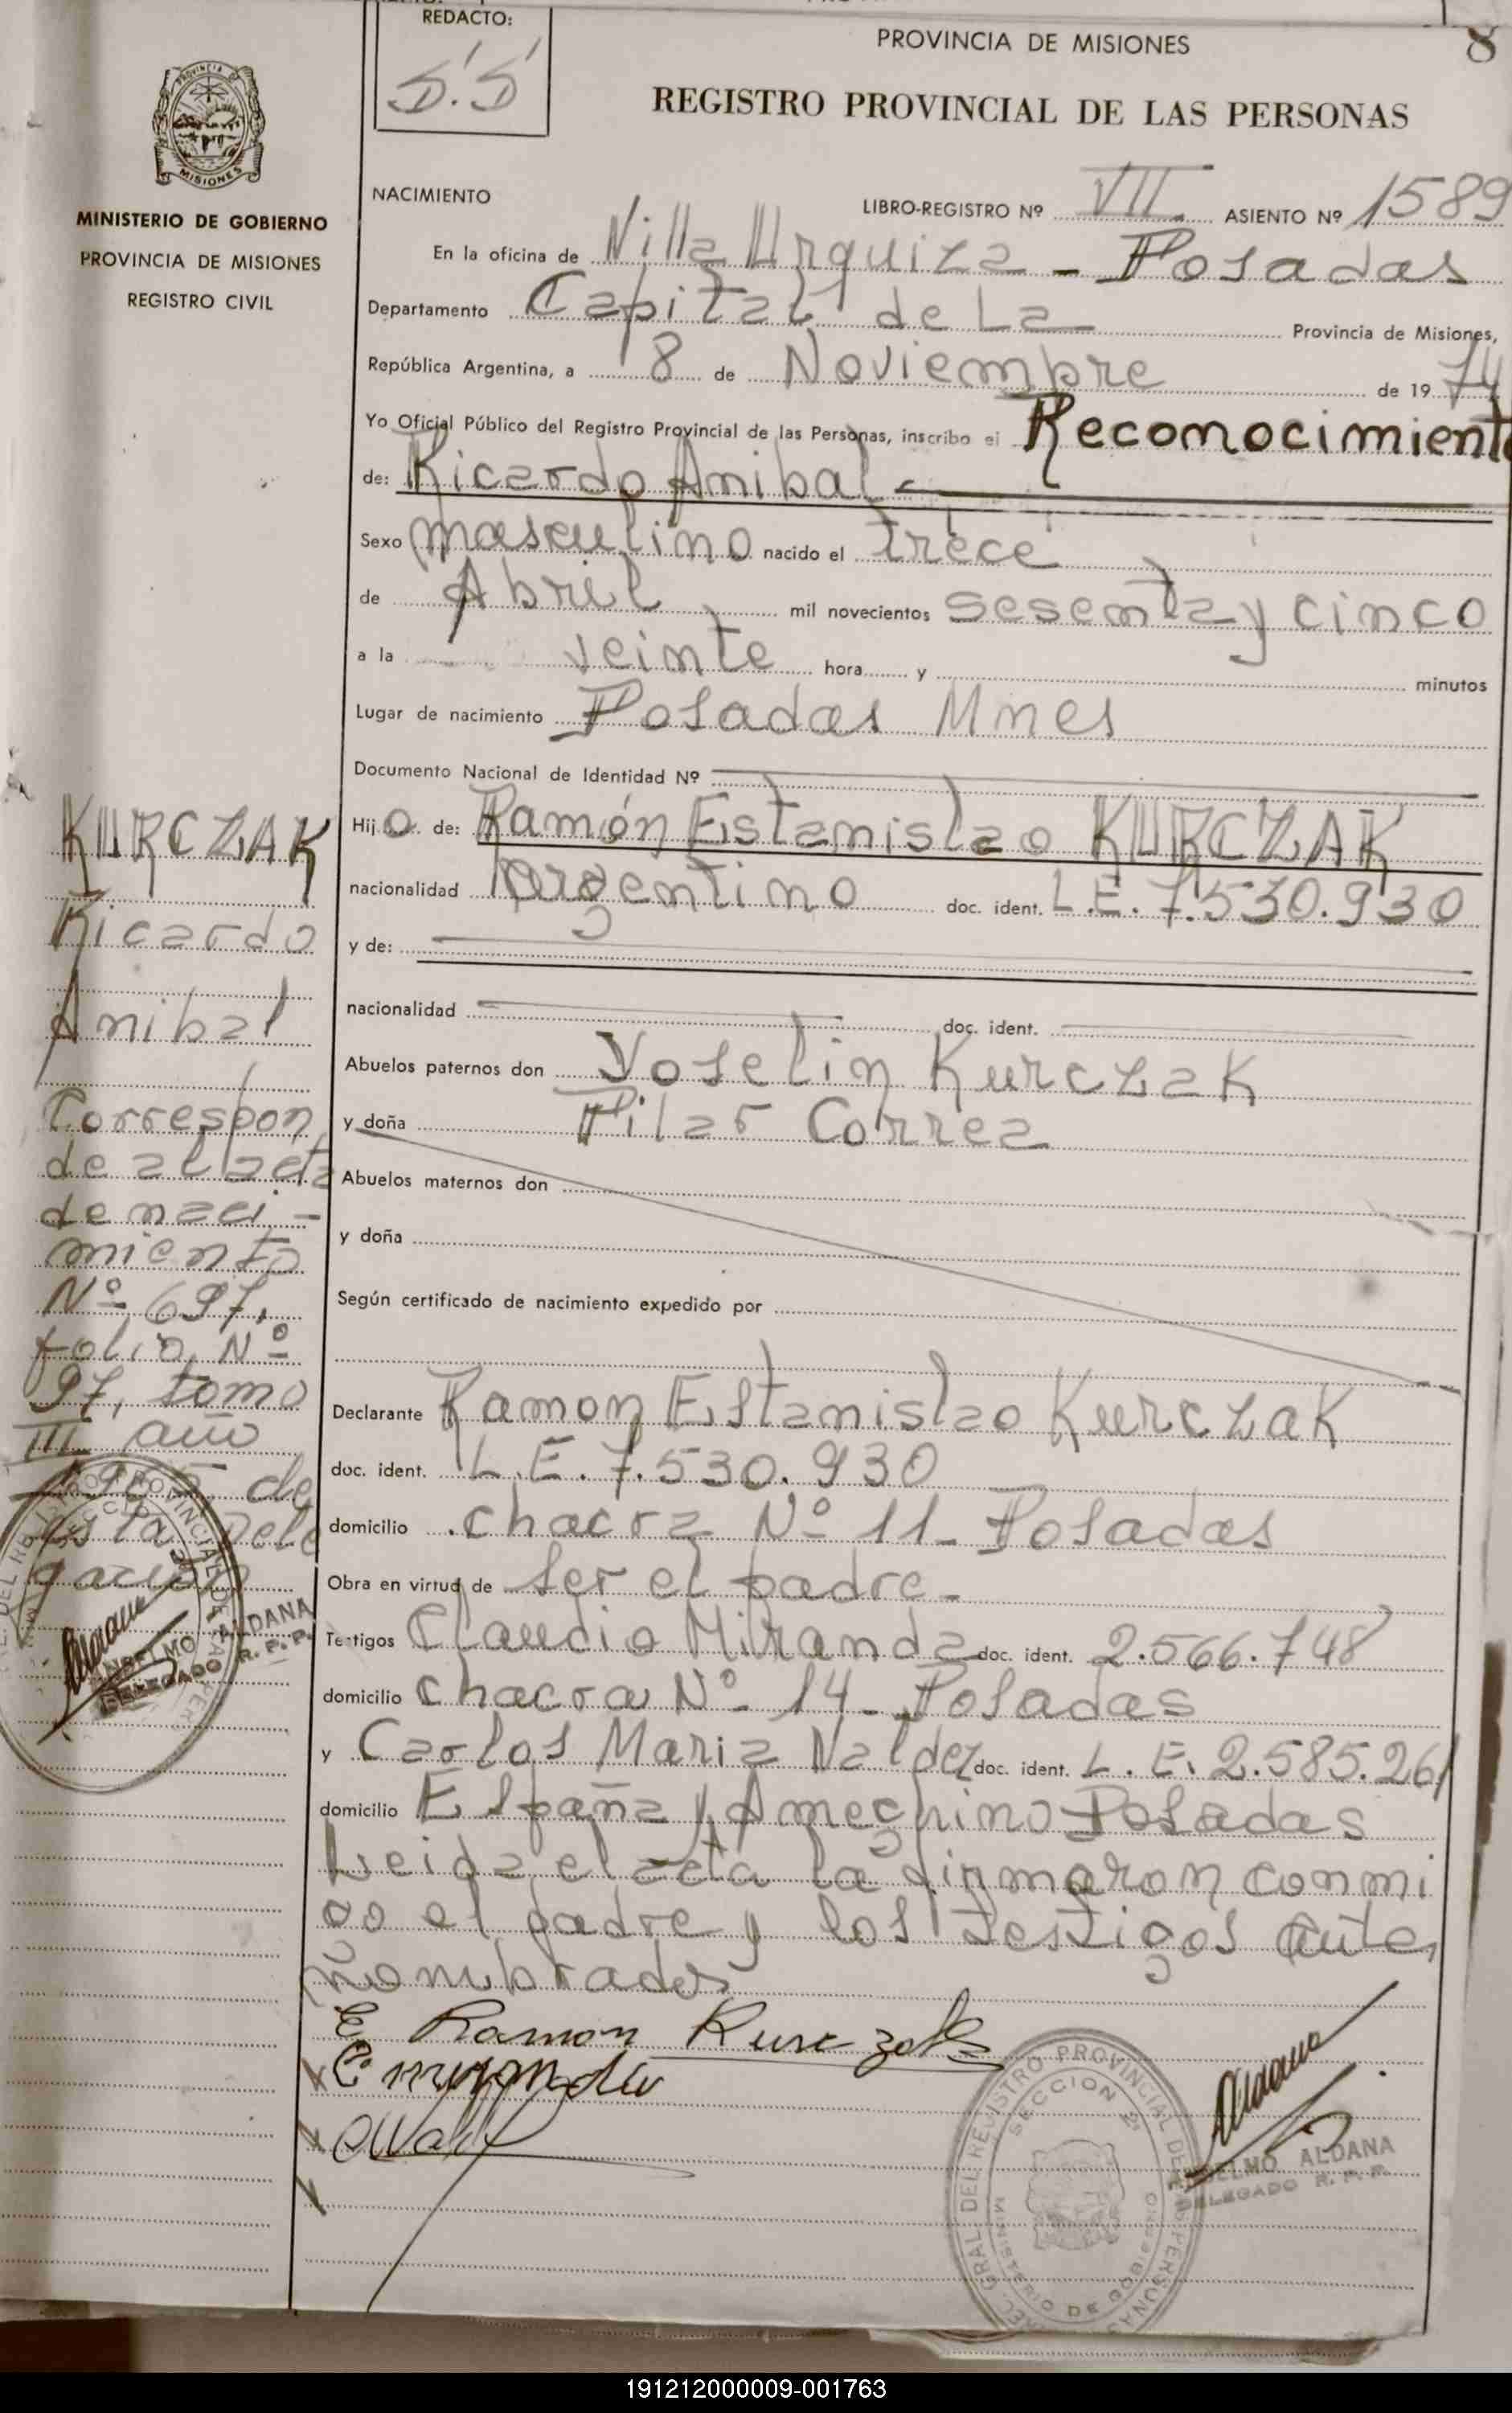 REDACTO:
PROVINCIA DE MISIONES
8
REGISTRO PROVINCIAL DE LAS PERSONAS
MISIONES
MINISTERIO DE GOBIERNO
PROVINCIA DE MISIONES
REGISTRO CIVIL
NACIMIENTO
LIBRO-REGISTRO Nº VII ASIENTO Nº 1589
En la oficina de Villa Urquiza - Posadas
Departamento Capital de La Provincia de Misiones,
República Argentina, a 8 de Noviembre de 1974
Yo Oficial Público del Registro Provincial de las Personas, inscribo el Reconocimiento
de: Ricardo Anibal
Sexo masculino nacido el trece
de Abril mil novecientos sesenta y cinco
a la veinte hora y minutos
Lugar de nacimiento Posadas Mnes
Documento Nacional de Identidad Nº
Hijo de: Ramón Estanislao KURCZAK
nacionalidad argentino doc. ident. L.E. 7.530.930
y de:
nacionalidad doc. ident.
Abuelos paternos don Yoselin Kurczak
y doña Pilar Correa
Abuelos maternos don
y doña
Según certificado de nacimiento expedido por
Declarante Ramon Estanislao Kurczak
doc. ident. L.E. 7.530.930
domicilio chacra Nº 11 - Posadas
Obra en virtud de ser el padre -
Testigos Claudio Miranda doc. ident. 2.566.748
domicilio chacra Nº 14 - Posadas
y Carlos Maria Valdez doc. ident. L.E. 2.585.261
domicilio España y Ameghino Posadas
Leida el acta la firmaron conmi
go el padre y los testigos ante,
nombrados
E. Ramon Kurczak
KURCZAK
Ricardo
Anibal
Correspon
de al acta
de naci-
miento
Nº 697,
folio Nº
97, tomo
III año
1965 de
esta Dele
gación
ANSELMO ALDANA
DELEGADO R. P. P.
GRAL DEL REGISTRO PROVINCIAL DE PERSONAS
SECCION
MINISTERIO DE GOBIERNO
ANSELMO ALDANA
DELEGADO R. P. P.
191212000009-001763